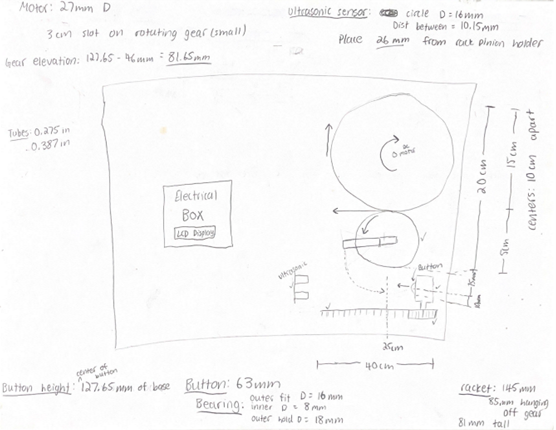 Motor: 27mm D
3cm slot on rotating gear (small)
Gear elevation: 127.65 - 46mm = 81.65mm
Ultrasonic sensor: circle D = 16mm
Dist between = 10.15mm
Place 26mm from rack pinion holder
Tubes: 0.275 in
0.387 in
Electrical
Box
LCD Display
DC
motor
20cm
15cm
5cm
centers: 10cm apart
Ultrasonic
Button
15mm
25cm
40cm
Button height: center of button 127.65mm of base
Button: 63mm
Bearing: outer fit D = 16mm
inner D = 8mm
outer hold D = 18mm
racket: 145mm
85mm hanging
off gear
81mm tall